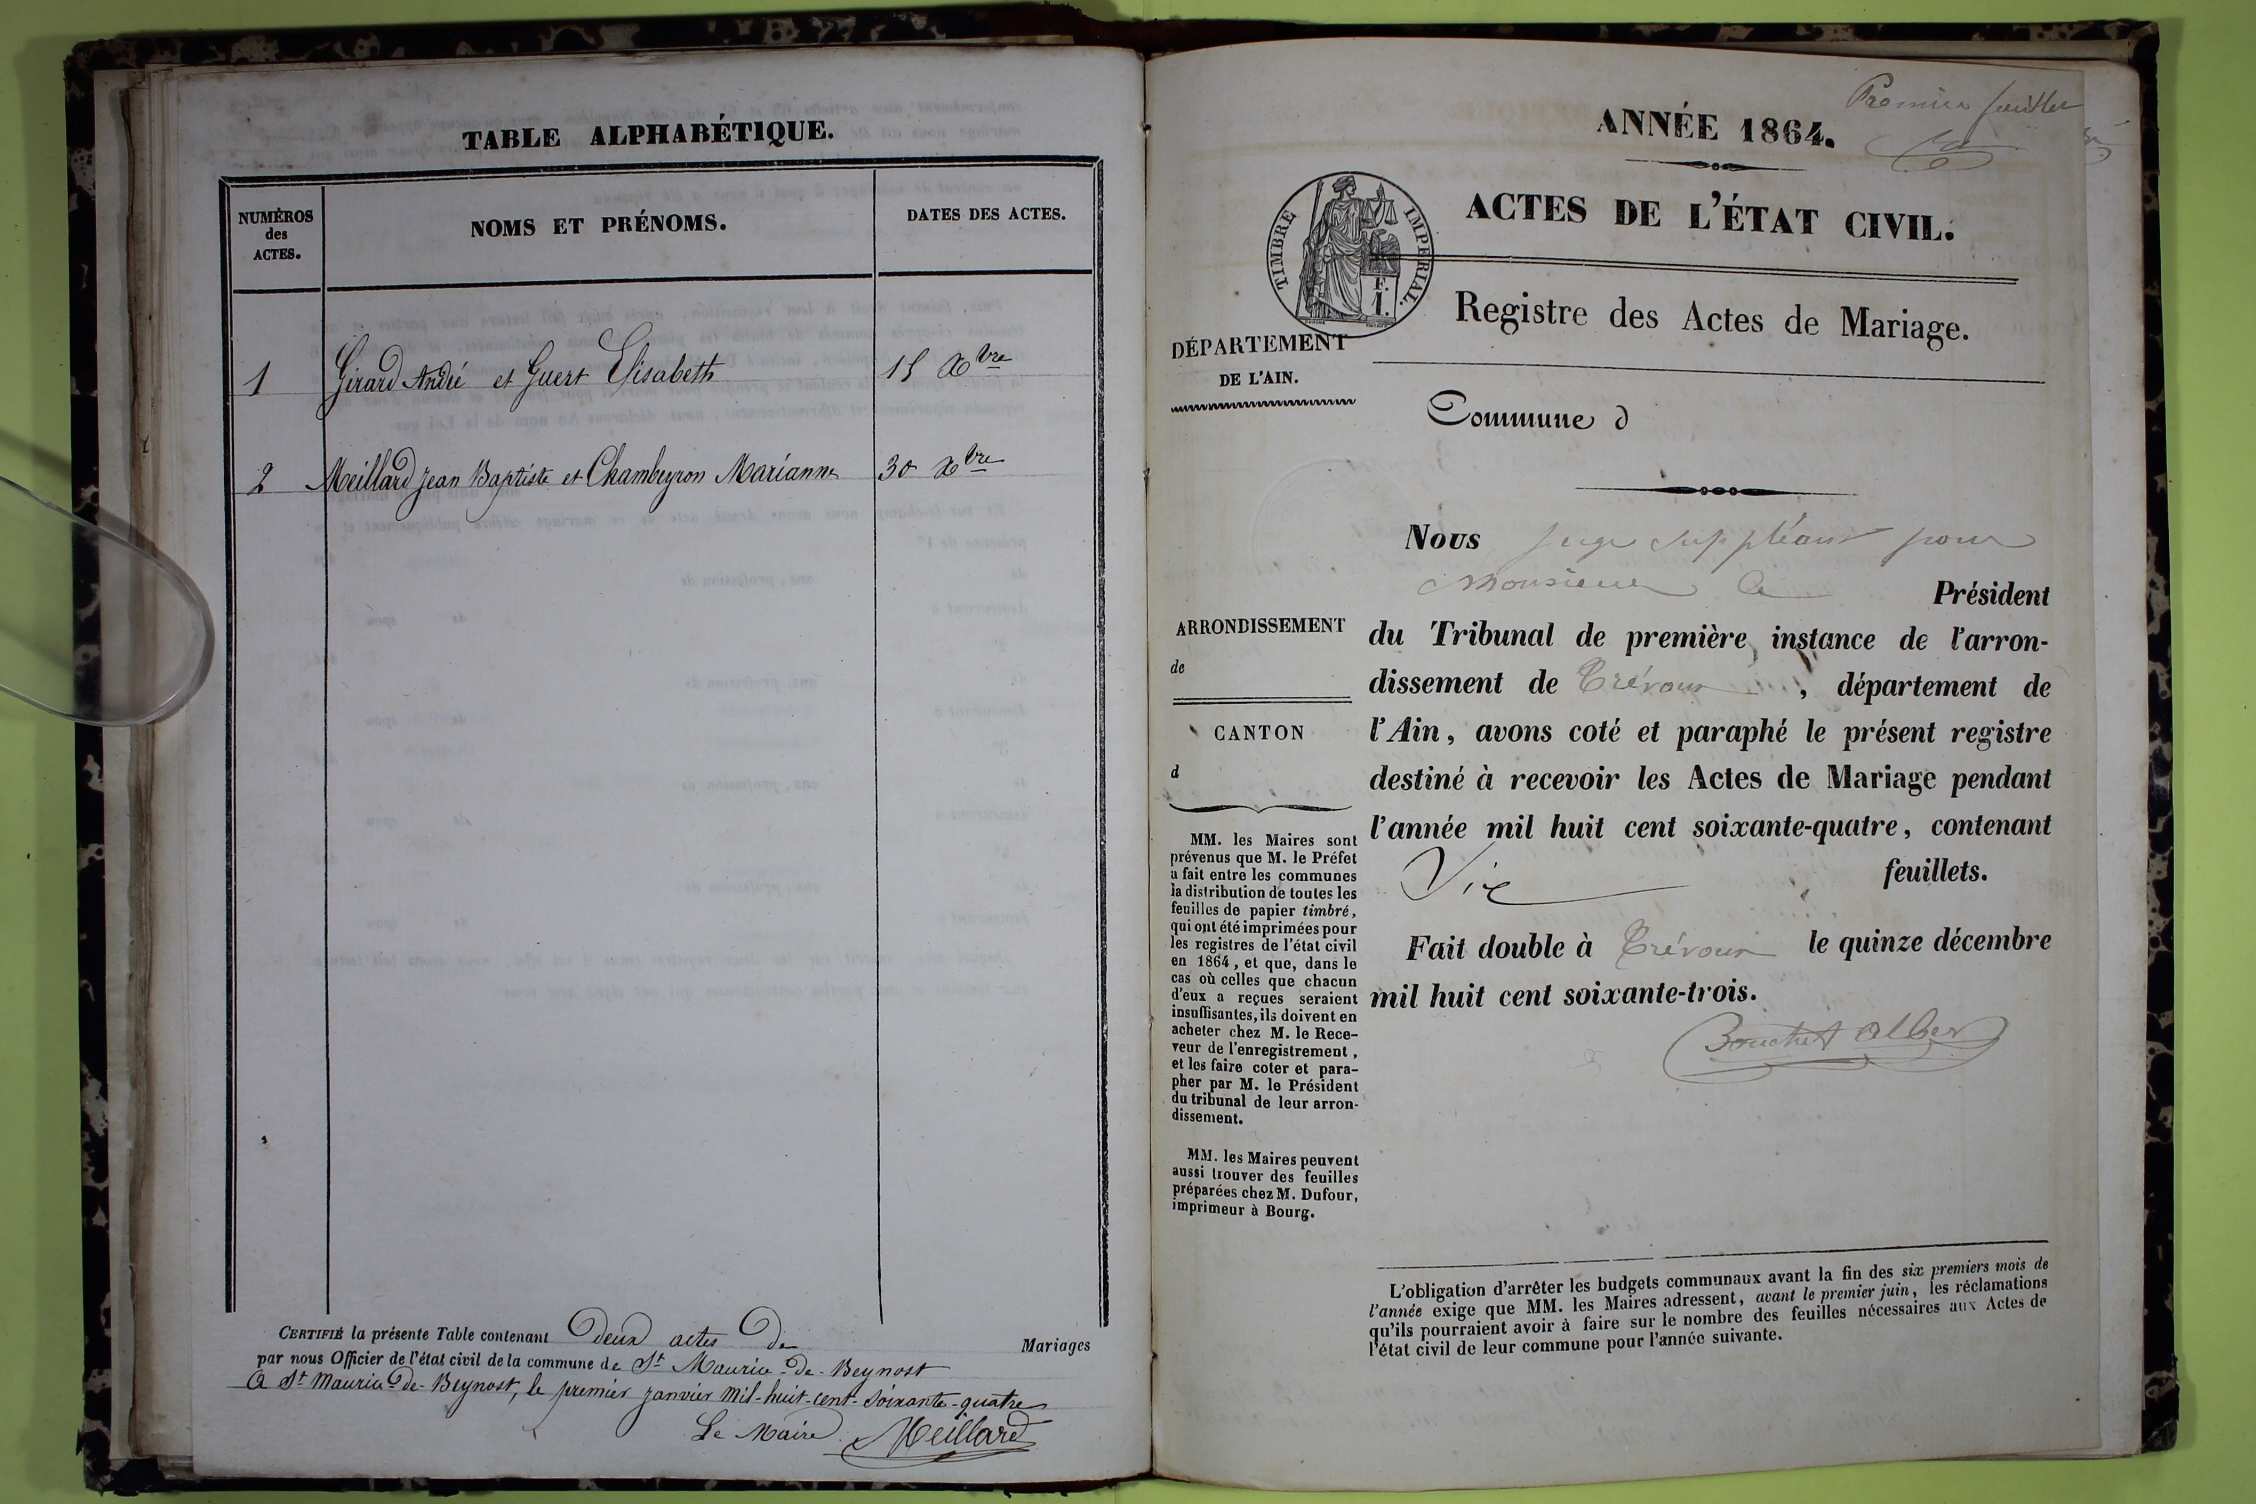 TABLE ALPHABÉTIQUE.
NUMÉROS
des
ACTES.
NOMS ET PRÉNOMS.
DATES DES ACTES.
1 Girard André et Guert Elisabeth 15 Xbre
2 Meillard Jean Baptiste et Chambeyron Marianne 30 Xbre
CERTIFIÉ la présente Table contenant deux actes de Mariages
par nous Officier de l'état civil de la commune de St Maurice-de-Beynost
A St Maurice-de-Beynost, le premier janvier mil-huit-cent-soixante-quatre
Le Maire Meillard
Premier feuillet
ANNÉE 1864.
ACTES DE L'ÉTAT CIVIL.
TIMBRE IMPÉRIAL.
F.
1.
Registre des Actes de Mariage.
DÉPARTEMENT
DE L'AIN.
Commune d
Nous juge suppléant pour
Monsieur le Président
du Tribunal de première instance de l'arron-
dissement de Trévoux, département de
l'Ain, avons coté et paraphé le présent registre
destiné à recevoir les Actes de Mariage pendant
l'année mil huit cent soixante-quatre, contenant
Six feuillets.
Fait double à Trévoux le quinze décembre
mil huit cent soixante-trois.
Bouchet
ARRONDISSEMENT
de
CANTON
d
MM. les Maires sont
prévenus que M. le Préfet
a fait entre les communes
la distribution de toutes les
feuilles de papier timbré,
qui ont été imprimées pour
les registres de l'état civil
en 1864, et que, dans le
cas où celles que chacun
d'eux a reçues seraient
insuffisantes, ils doivent en
acheter chez M. le Rece-
veur de l'enregistrement,
et les faire coter et para-
pher par M. le Président
du tribunal de leur arron-
dissement.
MM. les Maires peuvent
aussi trouver des feuilles
préparées chez M. Dufour,
imprimeur à Bourg.
L'obligation d'arrêter les budgets communaux avant la fin des six premiers mois de
l'année exige que MM. les Maires adressent, avant le premier juin, les réclamations
qu'ils pourraient avoir à faire sur le nombre des feuilles nécessaires aux Actes de
l'état civil de leur commune pour l'année suivante.